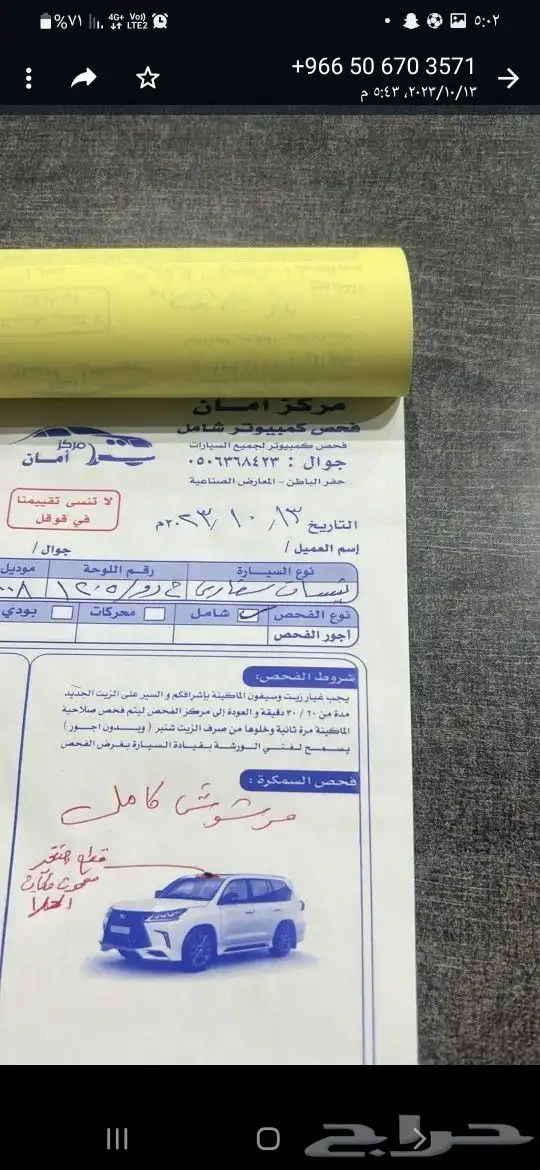 ٥:٠٢
%٧١
4G+ Vo))
LTE2
+966 50 670 3571
٢٠٢٣/١٠/١٣، ٥:٤٣ م
مركز امان
فحص كمبيوتر شامل
فحص كمبيوتر لجميع السيارات
جوال : ٠٥٠٦٣٦٨٤٢٣
حفر الباطن - المعارض الصناعية
مركز
أمان
لا تنسى تقييمنا
في قوقل
التاريخ ١٣ / ١٠ / ٢٠٢٣م
إسم العميل /
جوال /
نوع السيارة
رقم اللوحة
موديل
نوع الفحص
شامل
محركات
بودي
أجور الفحص
شروط الفحص:
يجب غيار زيت وسيفون الماكينة بإشرافكم و السير على الزيت الجديد
مدة من ٢٠ / ٣٠ دقيقة و العودة إلى مركز الفحص ليتم فحص صلاحية
الماكينة مرة ثانية وخلوها من صرف الزيت شنبر ( وبدون اجور )
يسمح لفني الورشة بقيادة السيارة بغرض الفحص
فحص السمكرة :
مرشوش كامل
حراج